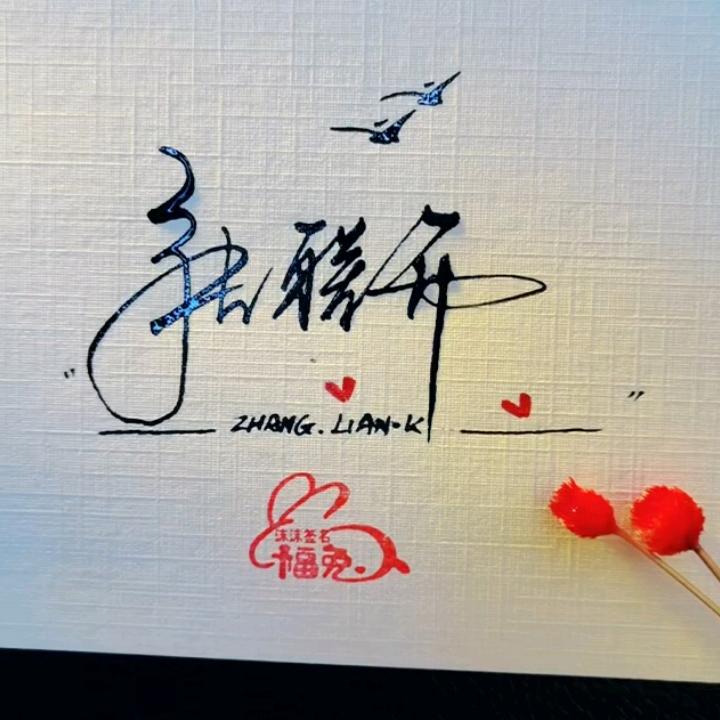 张联开
"ZHANG. LIAN-K"
沫沫签名
福兔